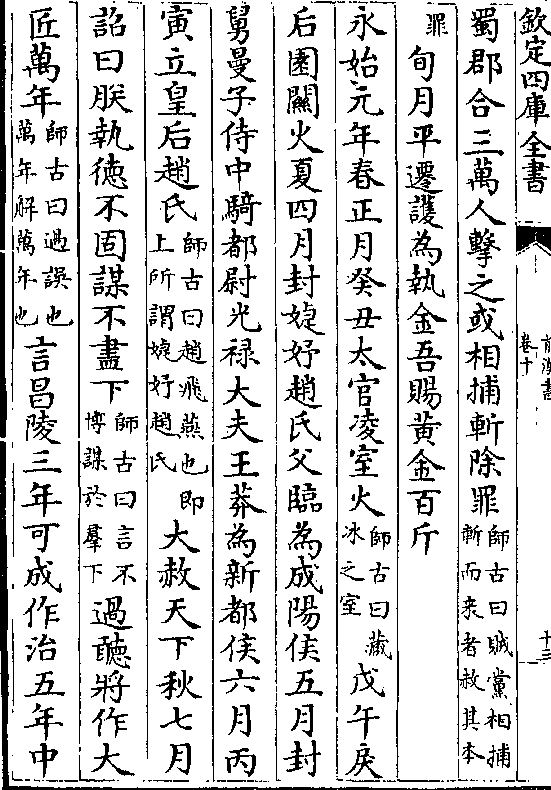 欽定四庫全書
前漢書
卷十
十三
蜀郡合三萬人擊之或相捕斬除罪師古曰賊黨相捕斬而來者赦其本
罪旬月平遷護為執金吾賜黃金百斤
永始元年春正月癸丑太官凌室火師古曰藏冰之室戊午戾
后園闕火夏四月封婕妤趙氏父臨為成陽侯五月封
舅曼子侍中騎都尉光祿大夫王莽為新都侯六月丙
寅立皇后趙氏師古曰趙飛燕也即上所謂婕妤趙氏大赦天下秋七月
詔曰朕執徳不固謀不盡下師古曰言不博謀於羣下過聽將作大
匠萬年師古曰過誤也萬年解萬年也言昌陵三年可成作治五年中